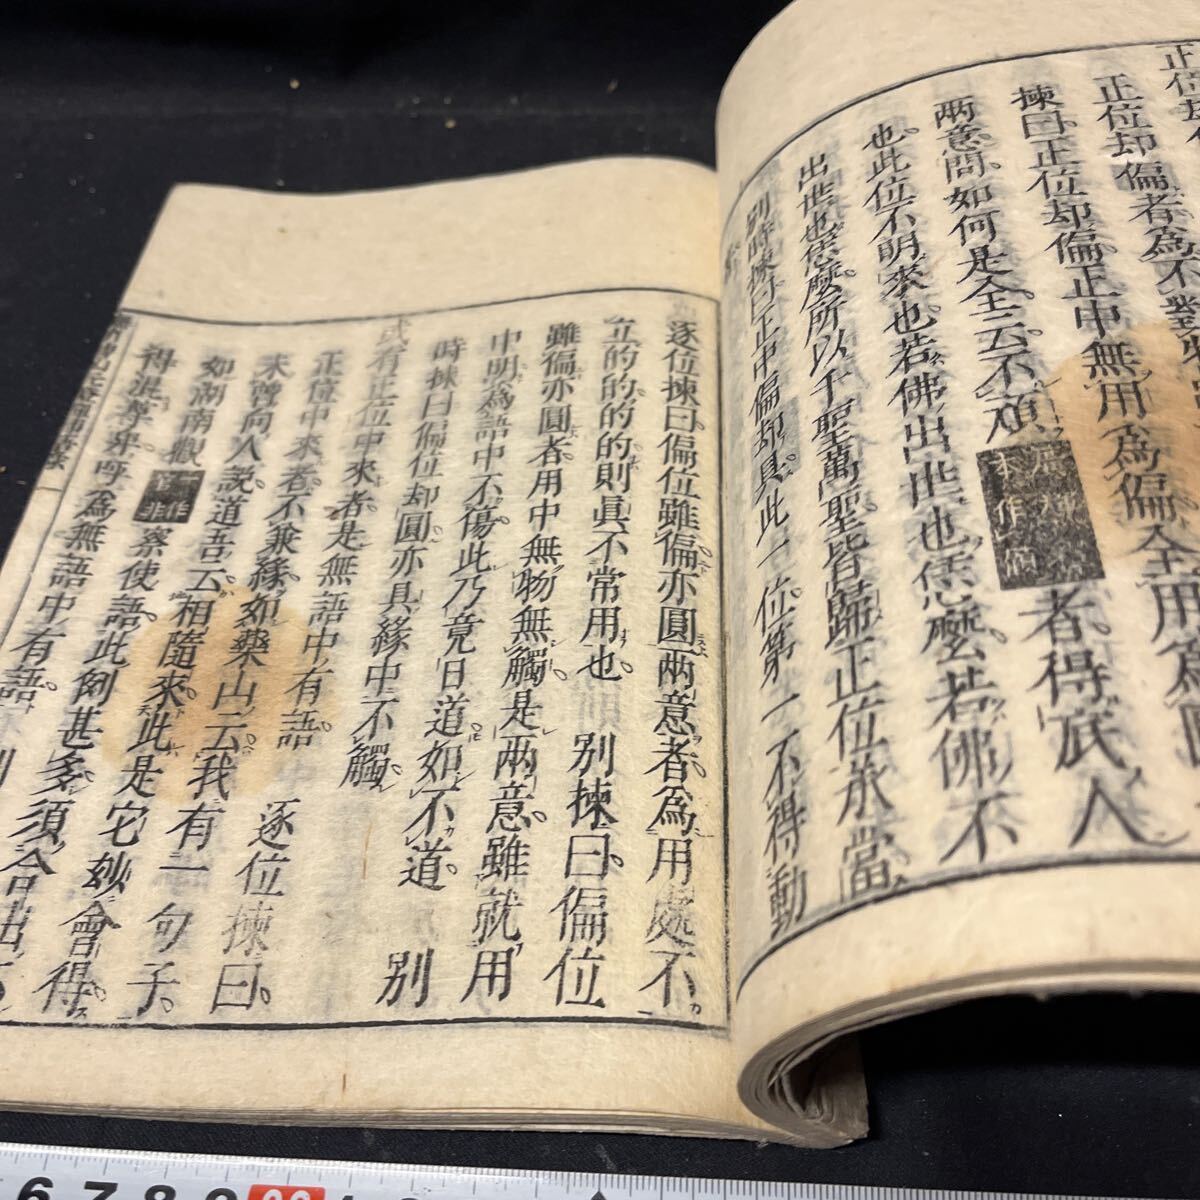 正位却偏者為不對
揀曰正位却偏正中無用為偏全用為圓
兩意問如何是全云不頑者得底人
也此位不明來也若佛出世也恁麼若佛不
出世也恁麼所以千聖萬聖皆歸正位承當
別時揀曰正中偏却具此一位第一不得動
逐位揀曰偏位雖偏亦圓兩意者為用處不
立的的的的則眞不常用也 別揀曰偏位
雖偏亦圓者用中無物無觸是兩意雖就用
中明為語中不傷此乃竟日道如不道 別
時揀曰偏位却圓亦具緣中不觸
或有正位中來者是無語中有語 逐位揀曰
正位中來者不兼緣如藥山云我有一句子
未曾向人說道吾云相隨來此是它妙會得
如湖南觀察使語此例甚多須合出不
得混尊卑呼為無語中有語 別
6 7 8 9